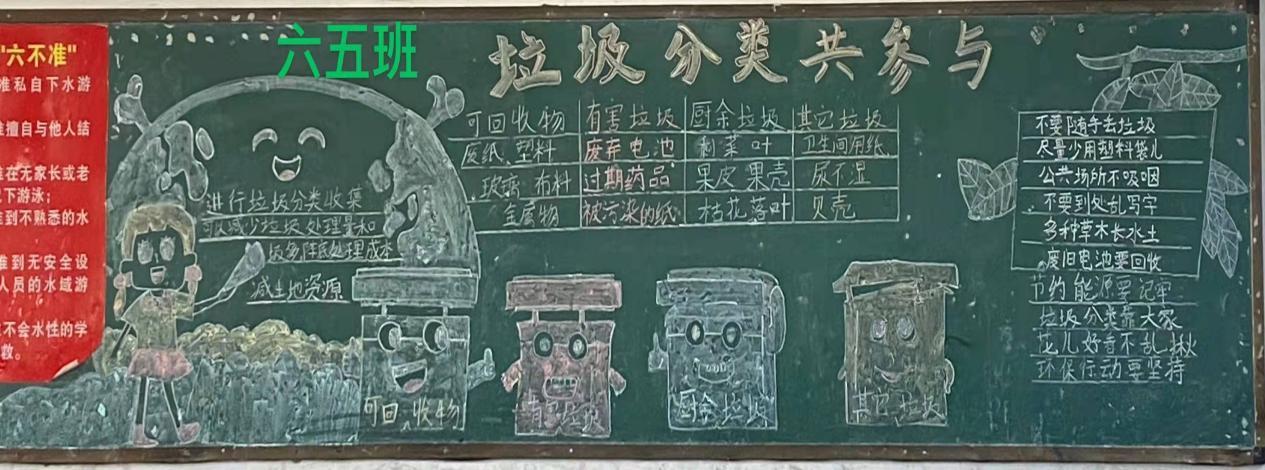 六五班
垃圾分类共参与
"六不准"
准私自下水游
擅自与他人结
准在无家长或老
下游泳；
准到不熟悉的水
准到无安全设
人员的水域游
不会水性的学
救。
进行垃圾分类收集
可以减少垃圾处理量和
圾多降底处理成本
减土地资源
可回收物 有害垃圾 厨余垃圾 其它垃圾
废纸、塑料 废弃电池 剩菜叶 卫生间用纸
玻璃 布料 过期药品 果皮果壳 尿不湿
金属物 被污染的纸 枯花落叶 贝壳
不要随手丢垃圾
尽量少用塑料袋儿
公共场所不吸咽
不要到处乱写字
多种草木长水土
废旧电池要回收
节约能源要记牢
垃圾分类靠大家
花儿好看不乱揪
环保行动要坚持
可回收物
有害垃圾
厨余垃圾
其它垃圾